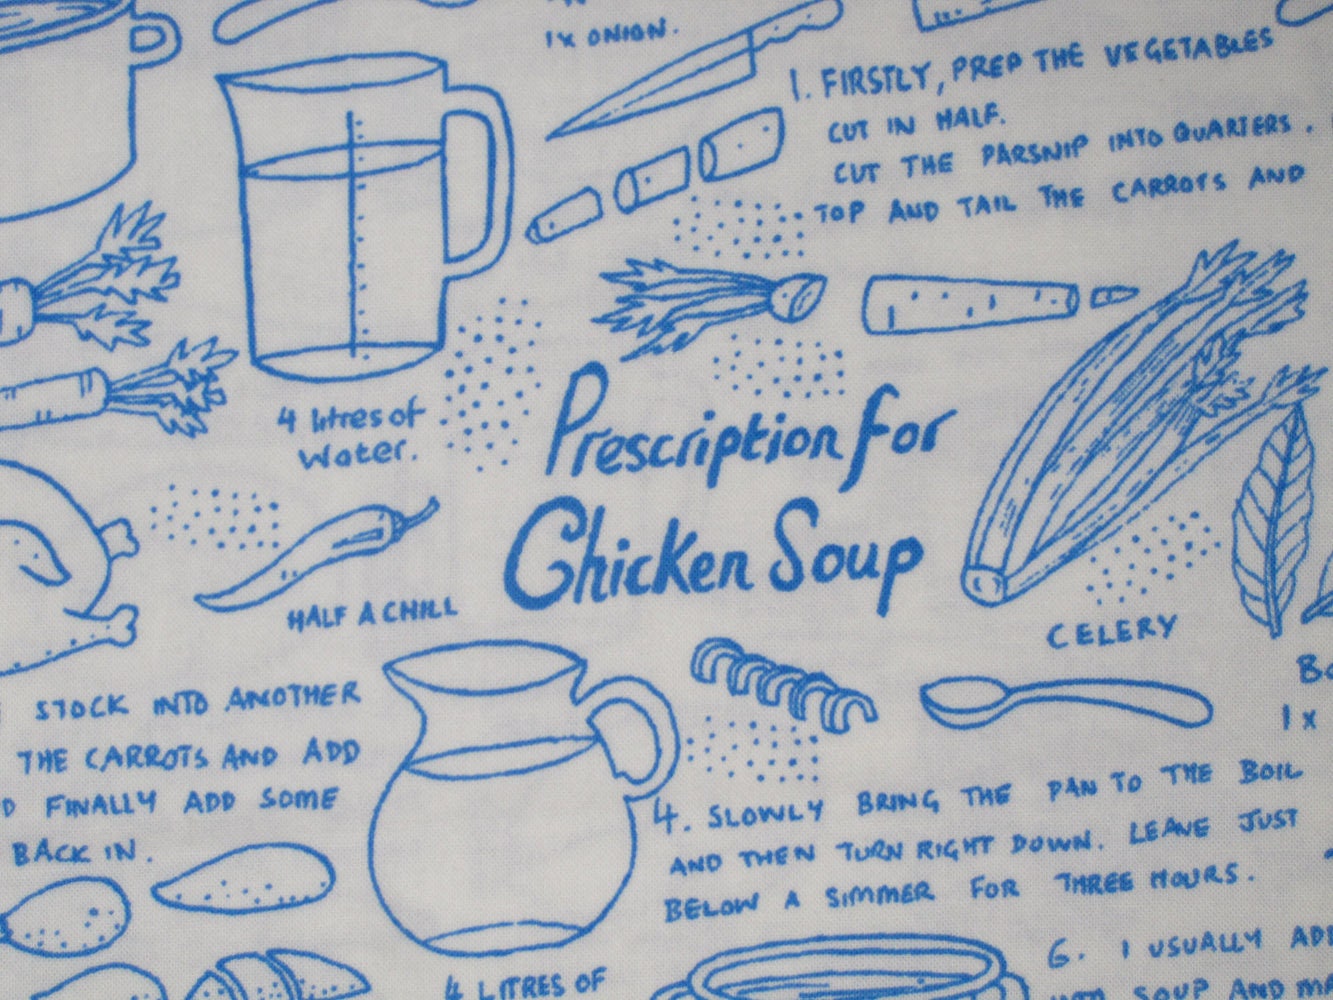 1x ONION.
1. FIRSTLY, PREP THE VEGETABLES
CUT IN HALF.
CUT THE PARSNIP INTO QUARTERS.
TOP AND TAIL THE CARROTS AND
4 litres of
Water.
Prescription for
Chicken Soup
HALF A CHILL
CELERY
1x
STOCK INTO ANOTHER
THE CARROTS AND ADD
FINALLY ADD SOME
BACK IN.
4. SLOWLY BRING THE PAN TO THE BOIL
AND THEN TURN RIGHT DOWN. LEAVE JUST
BELOW A SIMMER FOR THREE HOURS.
4 LITRES OF
6. I USUALLY ADD
SOUP AND